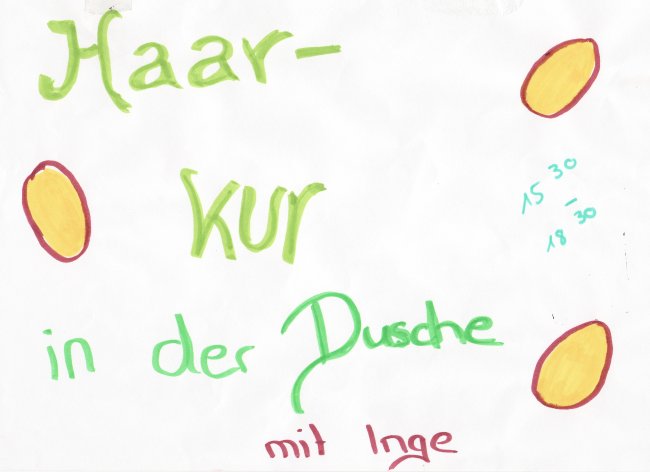 Haar-
kur
15 30
- 18 30
in der Dusche
mit Inge